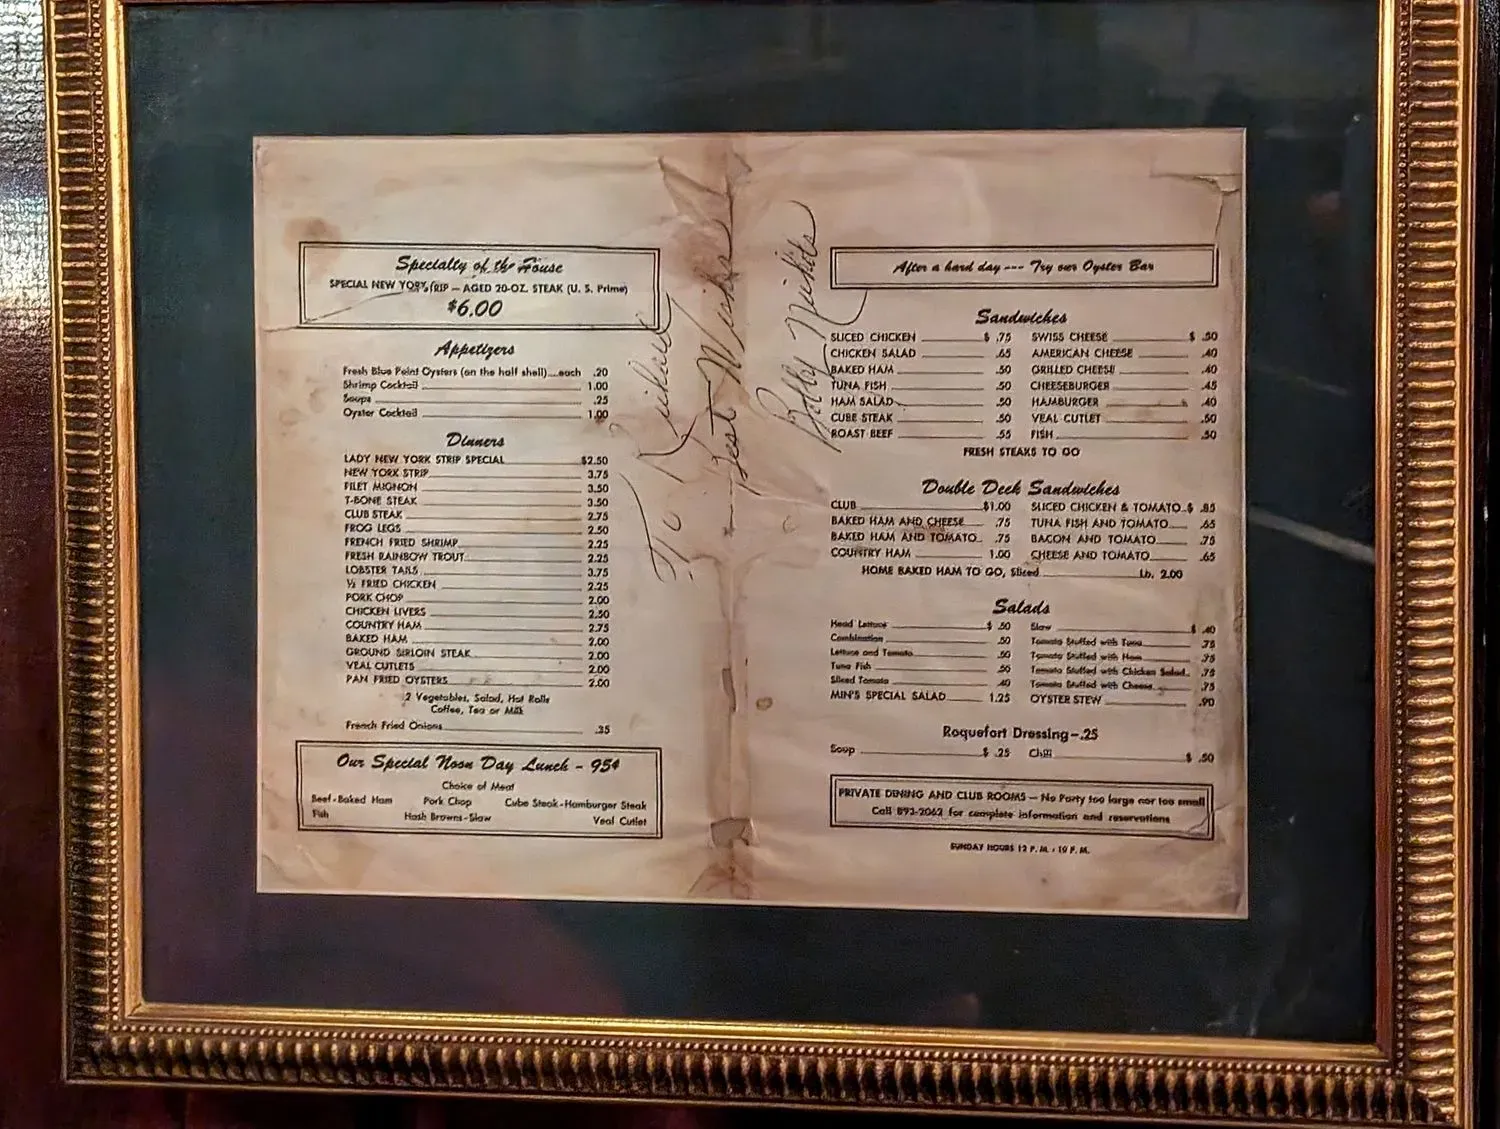 Specialty of the House
SPECIAL NEW YORK STRIP — AGED 20-OZ. STEAK (U. S. Prime)
$6.00
Appetizers
Fresh Blue Point Oysters (on the half shell)....each .20
Shrimp Cocktail 1.00
Soups .25
Oyster Cocktail 1.00
Dinners
LADY NEW YORK STRIP SPECIAL $2.50
NEW YORK STRIP 3.75
FILET MIGNON 3.50
T-BONE STEAK 3.50
CLUB STEAK 2.75
FROG LEGS 2.50
FRENCH FRIED SHRIMP 2.25
FRESH RAINBOW TROUT 2.25
LOBSTER TAILS 3.75
½ FRIED CHICKEN 2.25
PORK CHOP 2.00
CHICKEN LIVERS 2.50
COUNTRY HAM 2.75
BAKED HAM 2.00
GROUND SIRLOIN STEAK 2.00
VEAL CUTLETS 2.00
PAN FRIED OYSTERS 2.00
2 Vegetables, Salad, Hot Rolls
Coffee, Tea or Milk
French Fried Onions .35
Our Special Noon Day Lunch - 95¢
Choice of Meat
Beef-Baked Ham Pork Chop Cube Steak-Hamburger Steak
Fish Hash Browns-Slaw Veal Cutlet
To Richard
Best Wishes
Bobby Nichols
After a hard day --- Try our Oyster Bar
Sandwiches
SLICED CHICKEN $ .75 SWISS CHEESE $ .50
CHICKEN SALAD .65 AMERICAN CHEESE .40
BAKED HAM .50 GRILLED CHEESE .40
TUNA FISH .50 CHEESEBURGER .45
HAM SALAD .50 HAMBURGER .40
CUBE STEAK .50 VEAL CUTLET .50
ROAST BEEF .55 FISH .50
FRESH STEAKS TO GO
Double Deck Sandwiches
CLUB $1.00 SLICED CHICKEN & TOMATO $ .85
BAKED HAM AND CHEESE .75 TUNA FISH AND TOMATO .65
BAKED HAM AND TOMATO .75 BACON AND TOMATO .75
COUNTRY HAM 1.00 CHEESE AND TOMATO .65
HOME BAKED HAM TO GO, Sliced Lb. 2.00
Salads
Head Lettuce $ .50 Slaw $ .40
Combination .50 Tomato Stuffed with Tuna .75
Lettuce and Tomato .50 Tomato Stuffed with Ham .75
Tuna Fish .50 Tomato Stuffed with Chicken Salad .75
Sliced Tomato .40 Tomato Stuffed with Cheese .75
MIN'S SPECIAL SALAD 1.25 OYSTER STEW .90
Roquefort Dressing—.25
Soup $ .25 Chili $ .50
PRIVATE DINING AND CLUB ROOMS — No Party too large nor too small
Call 893-2062 for complete information and reservations
SUNDAY HOURS 12 P. M. - 10 P. M.